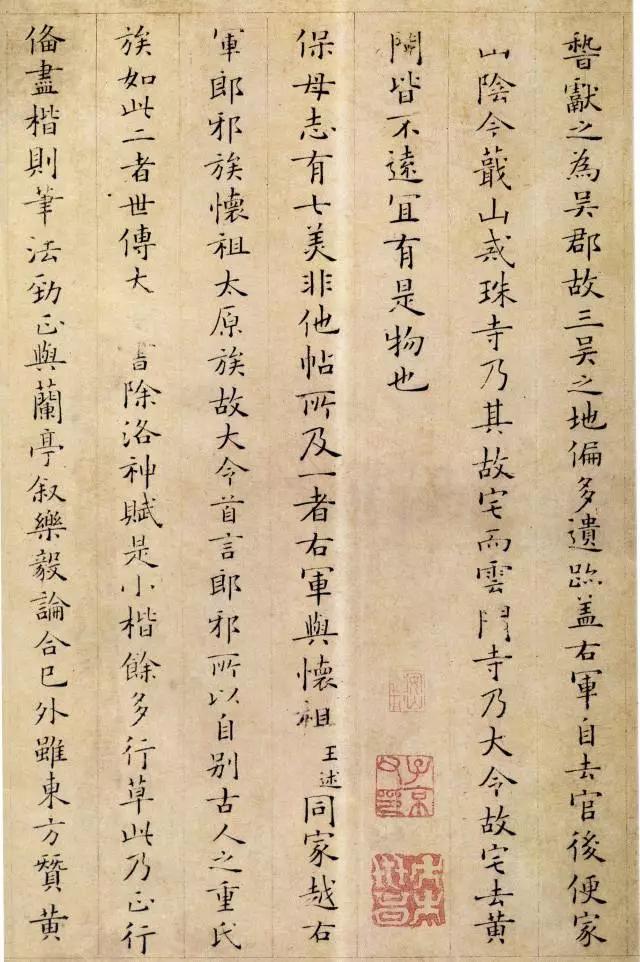 稽獻之為吳郡故三吳之地偏多遺跡盖右軍自去官後便家
山陰今蕺山戒珠寺乃其故宅而雲門寺乃大令故宅去黄
閍皆不遠宜有是物也
子京父印
保母志有七美非他帖所及一者右軍與懷祖王述同家越右
軍郎邪族懷祖太原族故大令首言郎邪所以自别古人之重氏
族如此二者世傳大 書除洛神賦是小楷餘多行草此乃正行
俻盡楷則筆法勁正與蘭亭叙樂毅論合已外雖東方贊黄